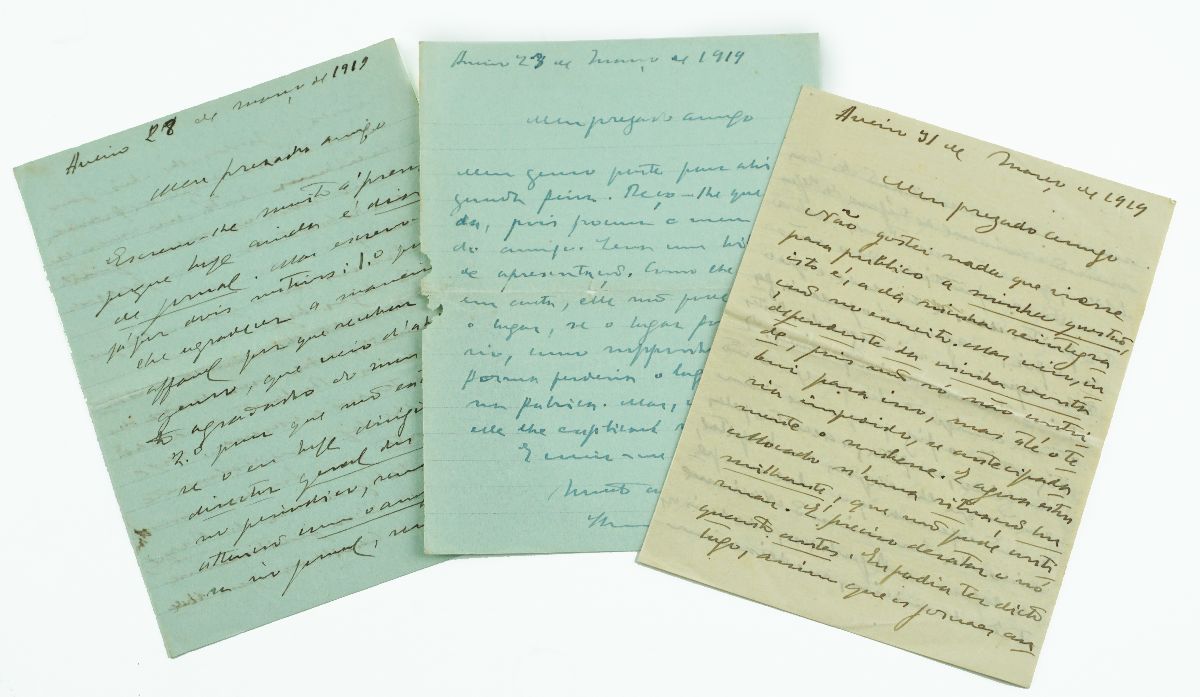 Aveiro 28 de Março de 1919
Meu prezado amigo
Escrevi-lhe muito á pres
que hoje ainda é dia
de jornal. Mas escrevo-
já por dois motivos: 1.º p
lhe agradecer a maneira
affavel por que recebeu
genro, que veio d'ahi
agradado do meu
2.º para que não
se o eu hoje dirigi
director geral das
no periodico,
attenção com o
no jornal,
Aveiro 23 de Março de 1919
Meu prezado amigo
Meu genro parte para ahi
gunda feira. Peço-lhe que
da, pois procura o meu
do amigo. Leva um bi
de apresentação. Como lhe
em carta, elle não pode
o lugar, se o lugar fo
rio, como supponho
forma perderia o lug
na fabrica. Mas,
elle lhe explicará
E creia-me
Muito
Aveiro 31 de Março de 1919
Meu prezado amigo
Não gostei nada que viesse
para publico a minha questão,
isto é, a da minha reintegra
ção no exercito. Mas veiu, in
dependente da minha vonta
de, pois não só não contri
bui para isso, mas até o te
ria impedido, se antecipada
mente o soubesse. E agora estou
collocado n'uma situação hu
milhante, que não pode conti
nuar. É preciso desatar o nó
quanto antes. Eu podia ter dicto
logo, assim que os jornaes an